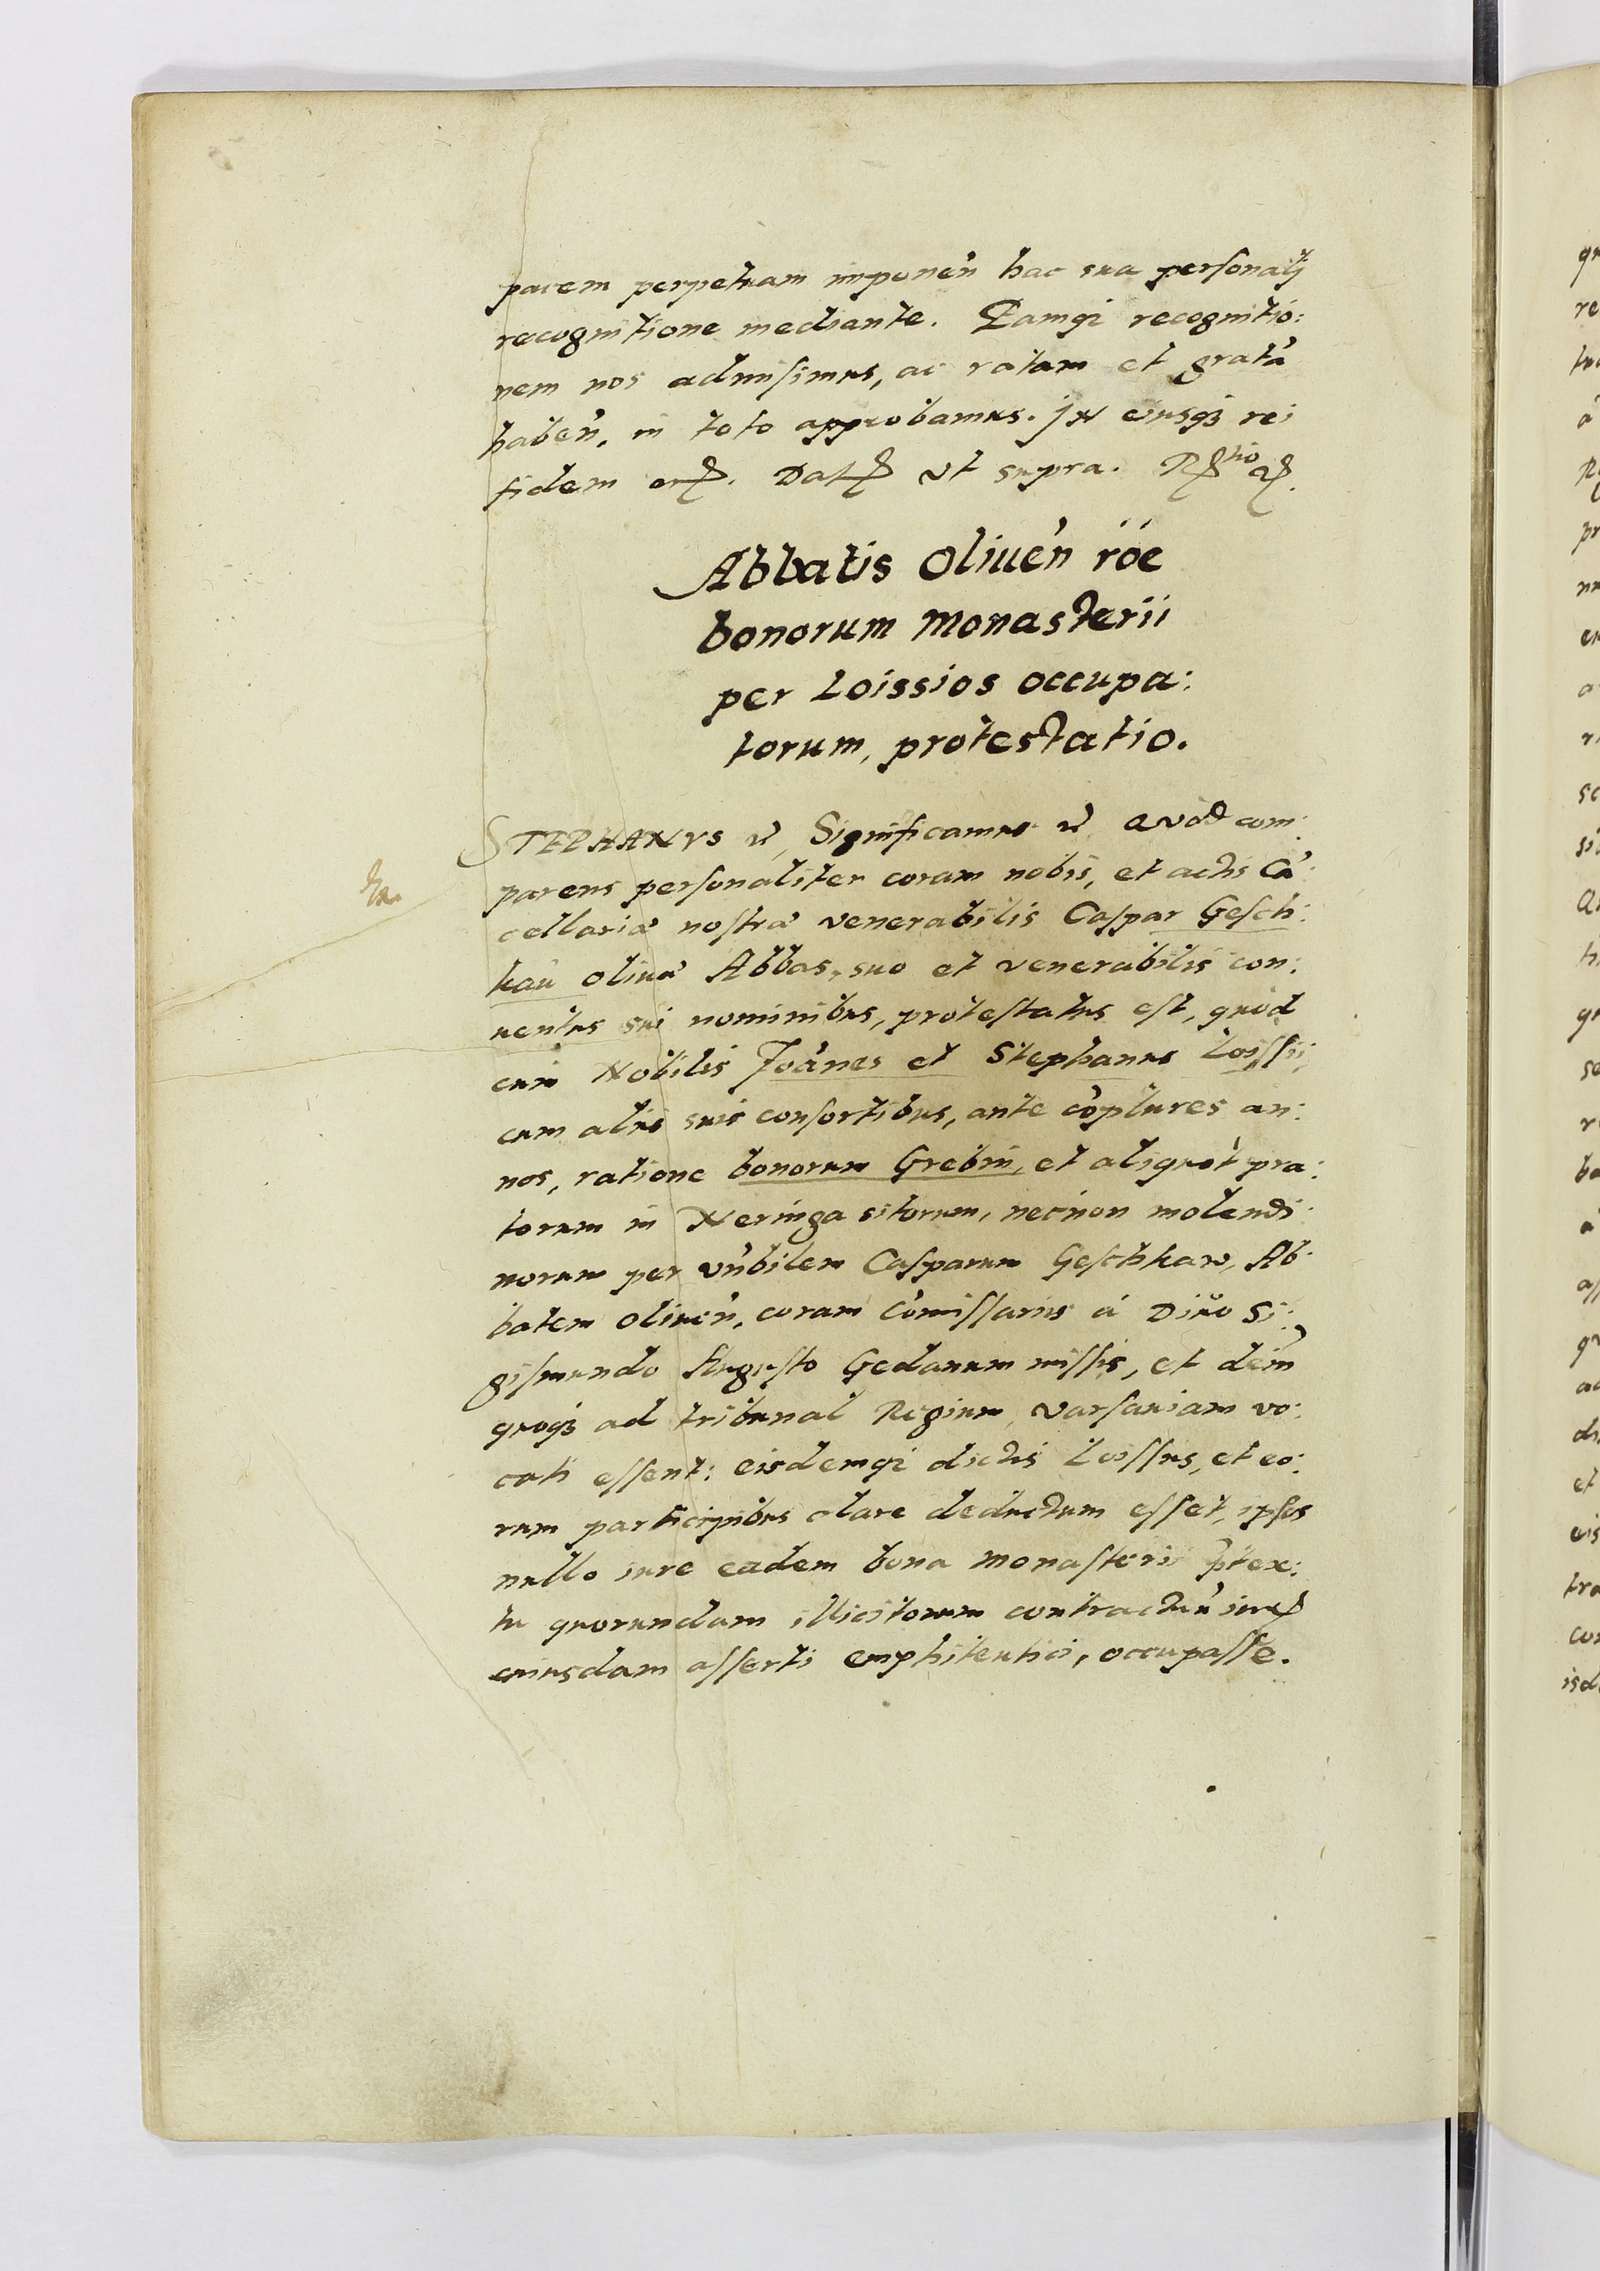 pacem perpetuam imponeñ hac sua personalj
recognitione mediante. Quamqȝ recognitio:
nem nos admisimus, ac ratam et gratã
habeñ, in toto approbamus. JN cuiusqȝ rei
fidem etc. Dat ut supra. R tio ę.
Abbatis Oliueñ rõe
bonorum Monasterii
per Loissios occupa:
torum, protestatio.
STEPHANVS etc, Significamus etc, Quòd com:
parens personaliter coram nobis, et actis Cã:
cellariæ nostræ venerabilis Caspar Gesch:
kau Oliuæ Abbas, suo et venerabilis con:
uentus sui nominibus, protestatus est, quòd
cum Nobilis Joãnes et Stephanus Loissii,
cum aliis suis consortibus, ante cõplures an:
nos, ratione bonorum Grebin, et aliquot pra:
torum in Neringa sitorum, necnon molendi:
norum per vñbilem Casparum Geschkaw, Ab:
batem Oliueñ, coram Cõmissariis à Diuo Si:
gismundo Augusto Gedanum missis, et deiñ
quoqȝ ad tribunal Regium, Varsauiam vo:
cati essent: eisdemqȝ dictis Loissiis, et eo:
rum participibus clare deductum esset, ipsos
nullo iure eadem bona Monasterii p̃tex:
tu quorundam illicitorum contractuũ iurisqȝ
cuiusdam asserti emphiteutici, occupasse.
qu
re
pr
sc
si
se
ba
et
eis
tra
con
isd